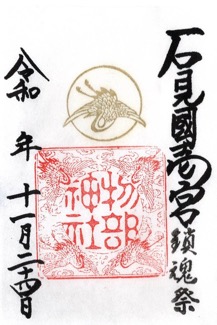 石見國壱宮鎮魂祭
物部
神社
令和 年 十一月二十四日